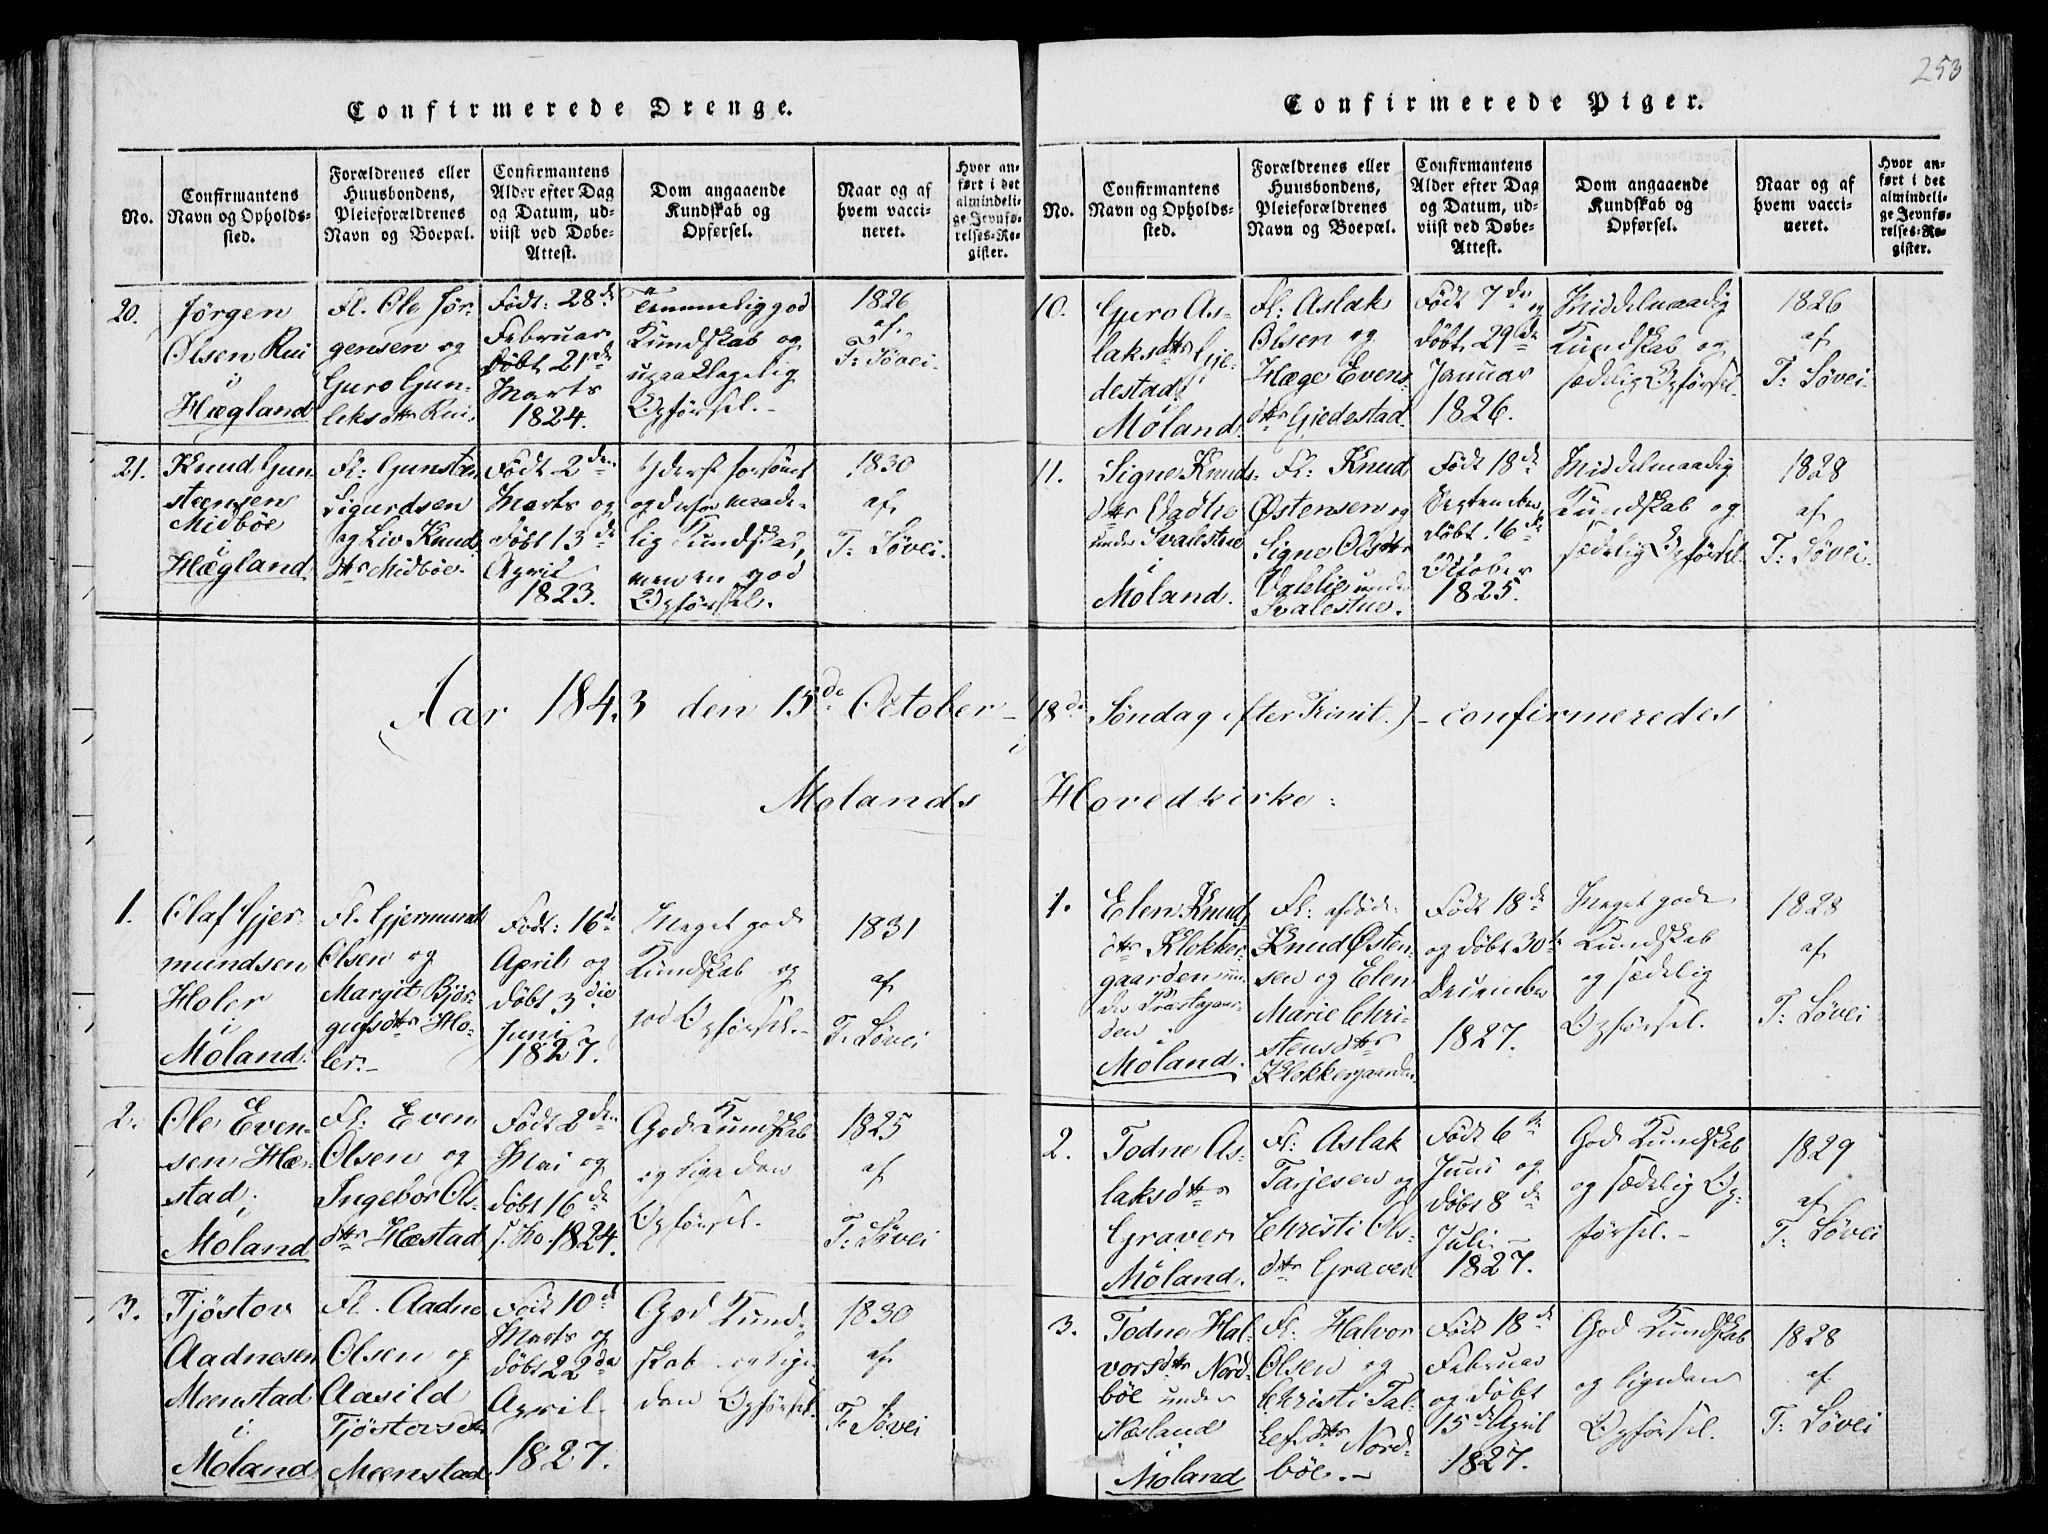 253
Confirmerede Drenge.
No.
Confirmantens
Navn og Opholds-
sted.
Forældrenes eller
Huusbondens,
Pleieforældrenes
Navn og Boepæl.
Confirmantens
Alder efter Dag
og Datum, ud-
viist ved Døbe-
Attest.
Dom angaaende
Kundskab og
Opførsel.
Naar og af
hvem vacci-
neret.
Hvor an-
ført i det
almindeli-
ge Jevnfø-
relses-Re-
gister.
20.
Jörgen
Olsen Rui
i
Hægland
Fl. Ole Jör-
gensen og
Guro Gun-
leksdttr Rui.
Født: 28de
Februar
døbt 21de
Marts
1824.
Temmelig god
Kundskab og
upaaklagelig
Opførsel.-
1826
af
T: Løvei.
21.
Knud Gun-
steensen
Midböe
i
Hægland.
Fl: Gunsten
Sigurdsen
og Liv Knuds
dtr Midböe.
Født 2den
Marts og
døbt 13de
April
1823.
Yderst forsömt
og derfor maade-
lig Kundskab,
men en god
Opførsel.
1830
af
T: Løvei.
Aar 1843 den 15de October
Molands
1.
Olaf Gjer-
mundsen
Holer
i
Moland.
Fl. Gjermund
Olsen og
Margit Björ-
gufsdttr Ho-
ler.-
Født: 16de
April og
døbt 3die
Juni
1827.
Meget god
Kundskab og
god Opførsel.-
1831
af
T: Løvei
2.
Ole Even-
sen Hæ-
stad,
Moland
Fl: Even
Olsen og
Ingebor Ols-
dttr Hæstad
Født 2den
Mai og
døbt 16de
1824.
God Kundskab
og ligedan
Opførsel.
1825
af
T: Løvei
3.
Tjöstov
Aadnesen
Meenstad
i
Moland
Fl. Aadne
Olsen og
Aasild
Tjöstovsdtr
Meenstad
Født 10de
Marts og
døbt 22de
April
1827.
God Kund-
skab og lige-
dan Opførsel.
1830
af
T: Løvei
Confirmerede Piger.
No.
Confirmantens
Navn og Opholds-
sted.
Forældrenes eller
Huusbondens,
Pleieforældrenes
Navn og Boepæl.
Confirmantens
Alder efter Dag
og Datum, ud-
viist ved Døbe-
Attest.
Dom angaaende
Kundskab og
Opførsel.
Naar og af
hvem vacci-
neret.
Hvor an-
ført i det
almindeli-
ge Jevnfø-
relses-Re-
gister.
10.
Guro As-
laksdttr Gje-
destad
Moland.
Fl: Aslak
Olsen og
Hæge Evens-
dttr Gjedestad.
Født 7de og
døbt 29de
Januar
1826.
Middelmaadig
Kundskab og
sædelig Opførsel.
1826
af
T: Løvei
11.
Signe Knuds-
dttr Vadlie
under Svalestue
i
Moland.
Fl: Knud
Østensen og
Signe Olsdttr
Vadlie under
Svalestue.
Født 18de
September
døbt 16de
October
1825.
Middelmaadig
Kundskab og
sædelig Opførsel.
1828
af
T: Løvei.
18de Søndag efter Trinit.) - confirmeredes
i
Hovedkirke:
1.
Elen Knuds
dttr Klokker-
gaarden un-
der Præstegaar-
den i
Moland.
Fl: afdöde
Knud Østen-
sen og Elen
Marie Chri-
stensdttr
Klokkergaarden.
Født 18de
og døbt 30te
December
1827.
Meget god
Kundskab
og sædelig
Opførsel.
1828
af
T: Løvei
2.
Todne As-
laksdttr
Graver
Moland.
Fl: Aslak
Tarjesen og
Christi Ols-
dttr Graver
Født 6te
Juni og
døbt 8de
Juli -
1827.
God Kundskab
og sædelig Op-
førsel.-
1829
af
T: Løvei
3.
Todne Hal-
vorsdttr Nord-
böe under
Næsland
Moland
Fl: Halvor
Olsen og
Christi Tal-
lefsdttr Nord-
böe.-
Født 18de
Februar
og døbt
15de April
1827.
God Kundskab
og ligedan
Opførsel.
1828
af
T: Løvei